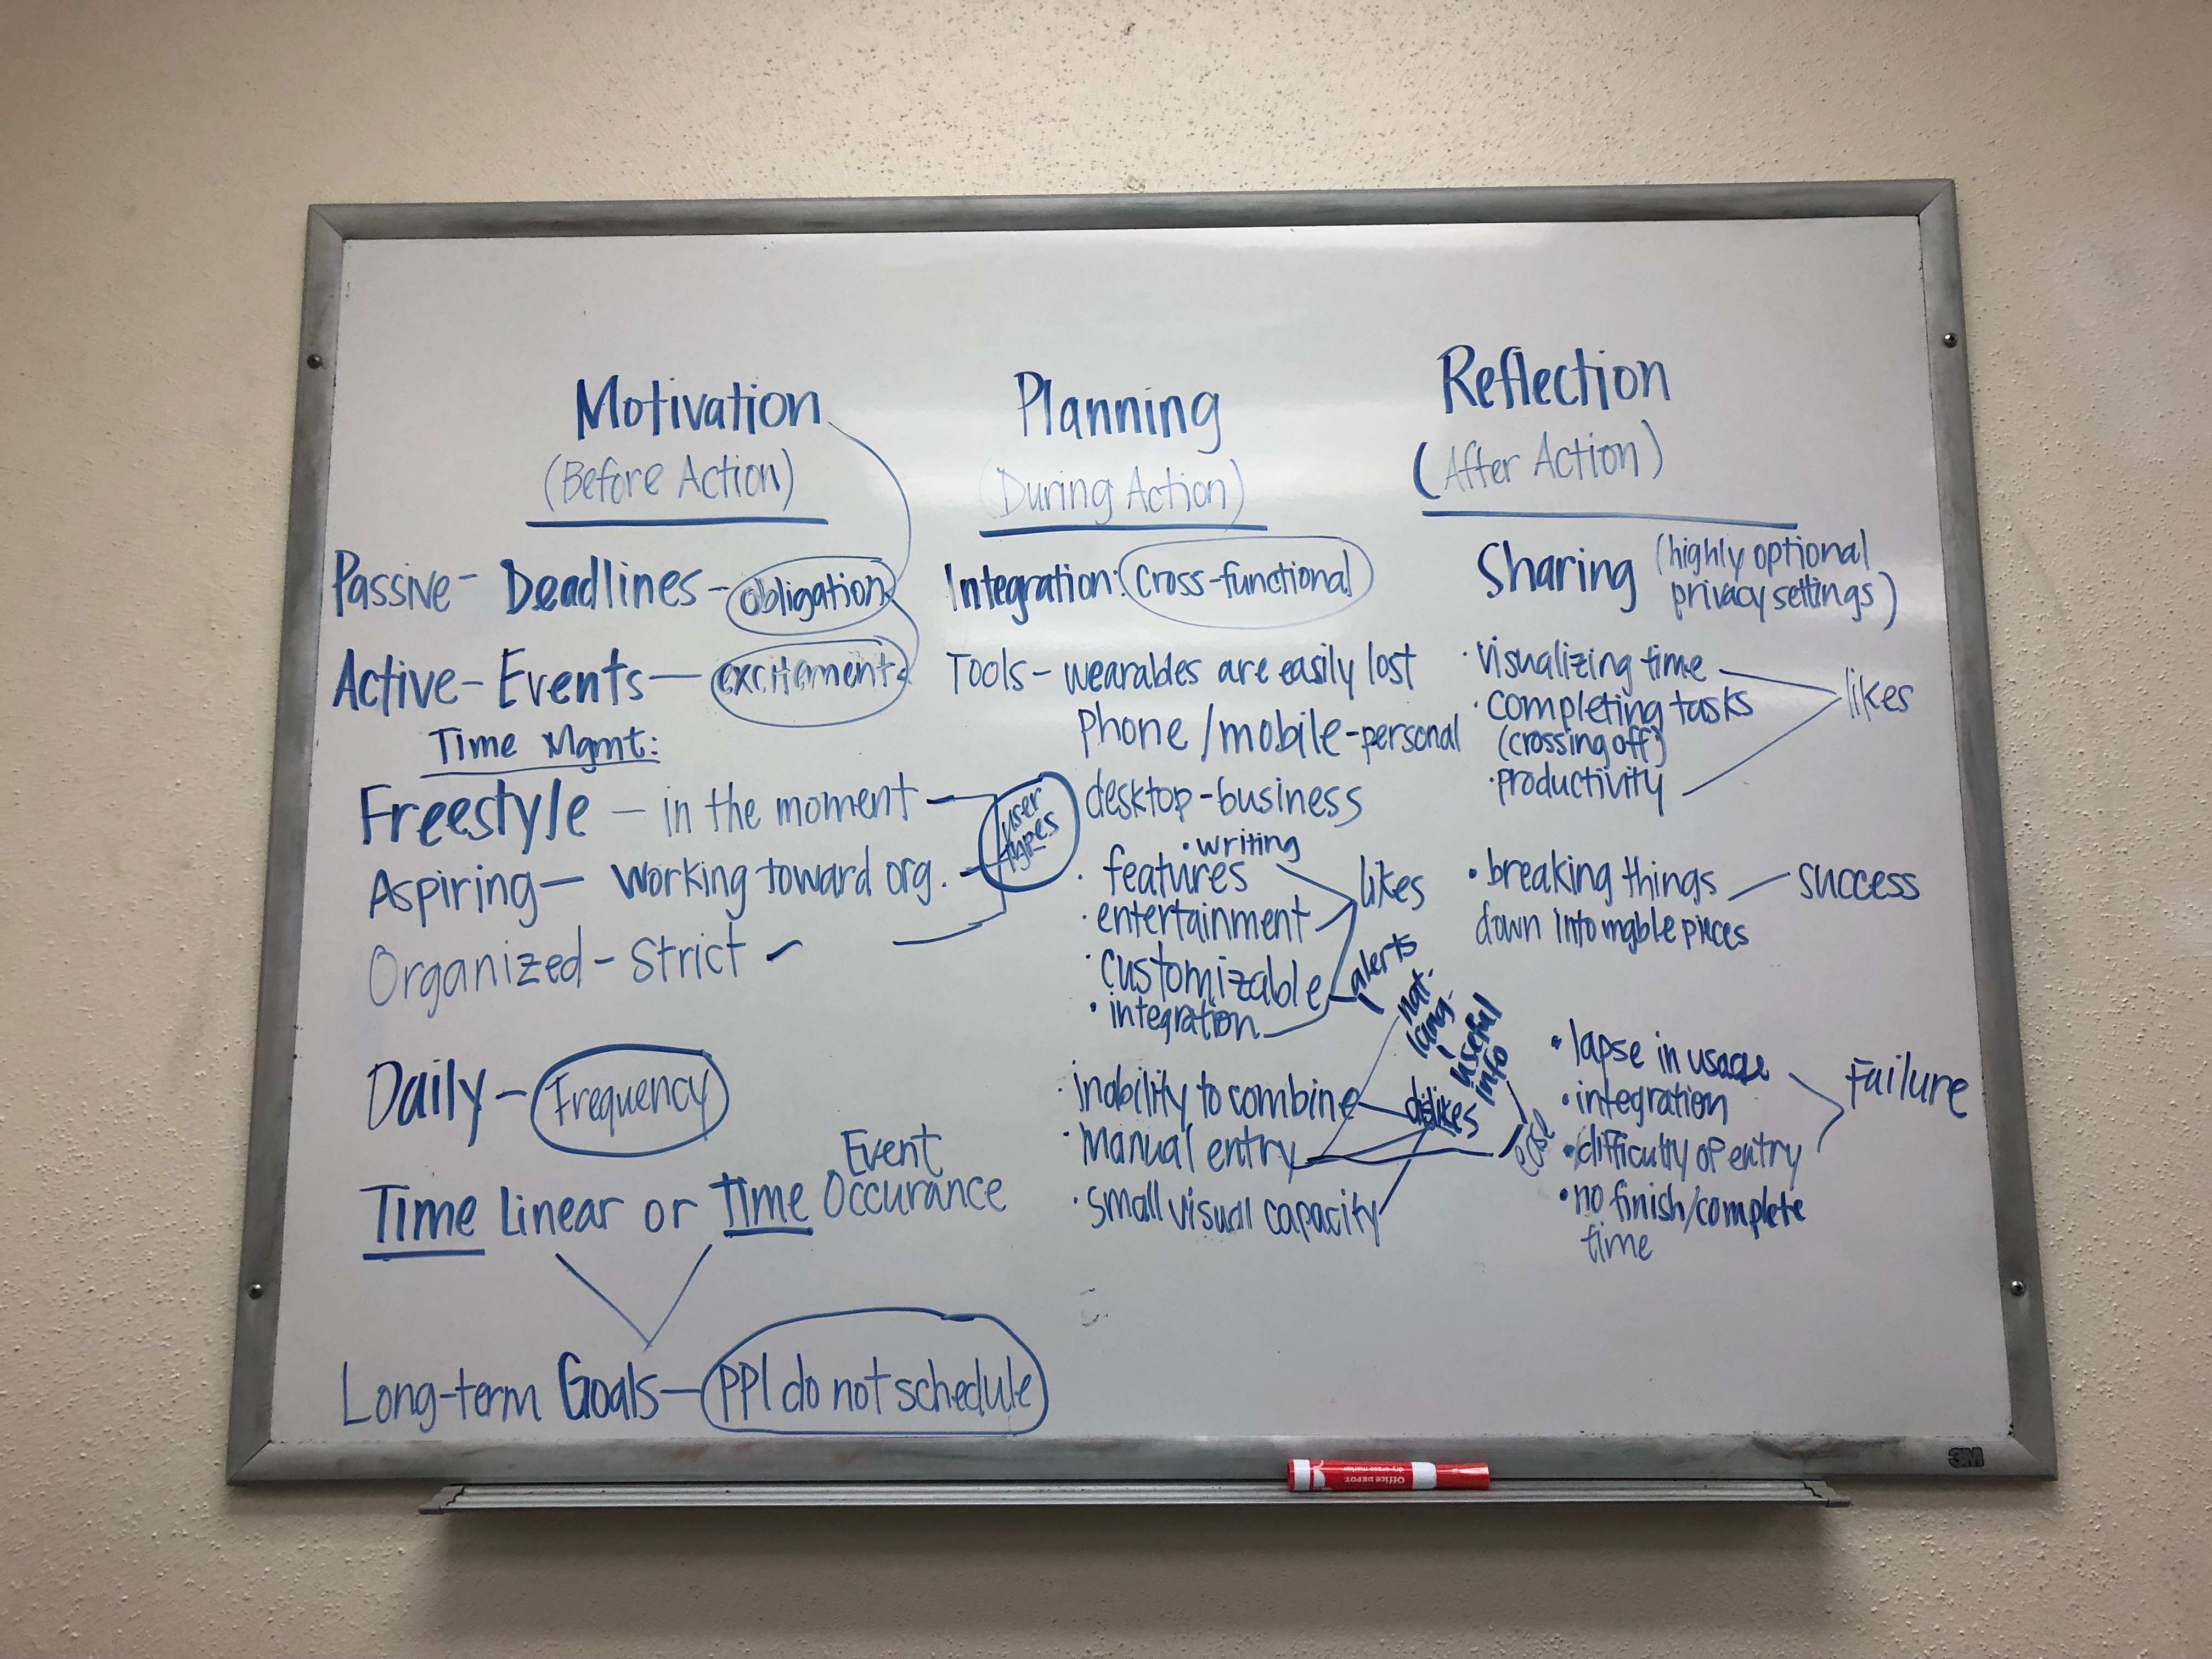 Motivation
(Before Action)
Passive - Deadlines - obligation
Active - Events - excitement
Time Mgmt:
Freestyle - in the moment
Aspiring - Working toward org.
Organized - Strict -
user types
Daily - Frequency
Time Linear or Time Event Occurance
Long-term Goals - PPl do not schedule
Planning
(During Action)
Integration: cross-functional
Tools - wearables are easily lost
Phone / mobile - personal
desktop - business
• writing
• features
• entertainment
• customizable
• integration
likes
alerts
nat.
lang.
useful
info
• inability to combine
• Manual entry
• small visual capacity
dislikes
Reflection
(After Action)
Sharing (highly optional
privacy settings)
• visualizing time
• completing tasks
(crossing off)
• productivity
likes
• breaking things
down into mgble pieces
success
• lapse in usage
• integration
• difficulty of entry
• no finish/complete
time
Failure
3M
Office DEPOT
dry-erase marker